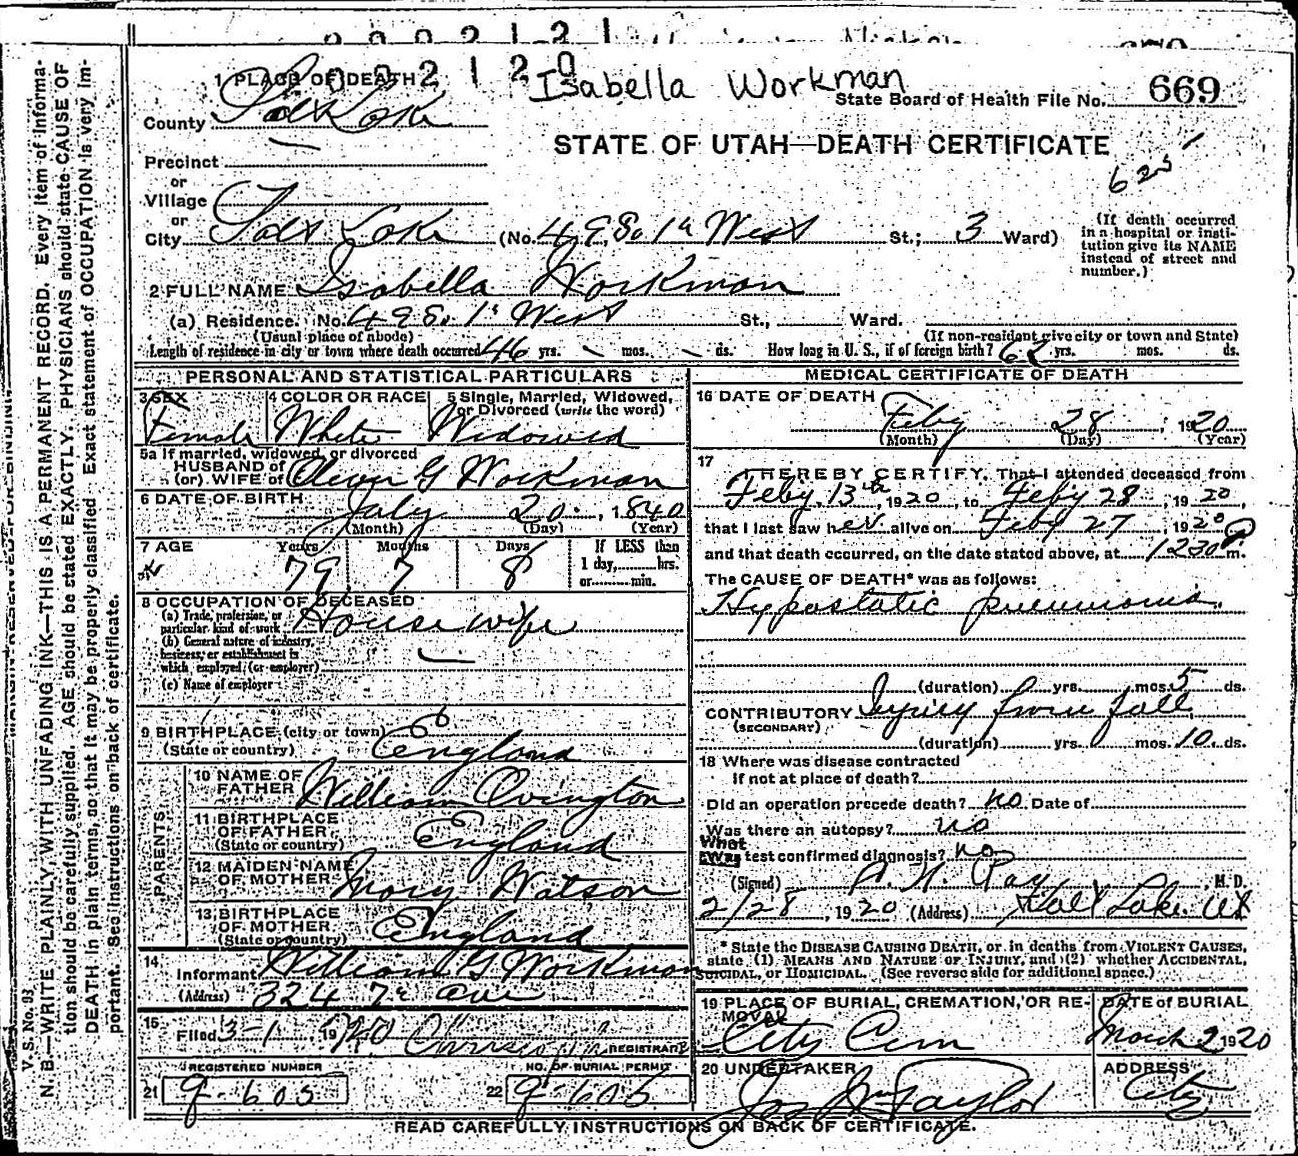 1 PLACE OF DEATH
0 0 2 1 2 0
Isabella Workman
State Board of Health File No. 669
County Salt Lake
STATE OF UTAH—DEATH CERTIFICATE
Precinct
or
Village
or
City Salt Lake (No. 49 So 1st West St.; 3 Ward)
(If death occurred in a hospital or institution give its NAME instead of street and number.)
2 FULL NAME Isabella Workman
(a) Residence. No. 49 So 1st West St., Ward.
(Usual place of abode) (If non-resident give city or town and State)
Length of residence in city or town where death occurred 46 yrs. — mos. — ds. How long in U. S., if of foreign birth? yrs. mos. ds.
PERSONAL AND STATISTICAL PARTICULARS
3 SEX Female
4 COLOR OR RACE White
5 Single, Married, Widowed, or Divorced (write the word) Widowed
5a If married, widowed, or divorced
HUSBAND of
(or) WIFE of G Workman
6 DATE OF BIRTH July 20, 1840
(Month) (Day) (Year)
7 AGE Years 79 Months 7 Days 8
If LESS than 1 day, hrs. or min.
8 OCCUPATION OF DECEASED
(a) Trade, profession, or particular kind of work House wife
(b) General nature of industry, business, or establishment in which employed (or employer) —
(c) Name of employer
9 BIRTHPLACE (city or town)
(State or country) England
PARENTS
10 NAME OF FATHER William Ovington
11 BIRTHPLACE OF FATHER (State or country) England
12 MAIDEN NAME OF MOTHER Mary Watson
13 BIRTHPLACE OF MOTHER (State or country) England
14 Informant William G Workman
(Address) 324 7th Ave
15 Filed 3-1 1920 REGISTRAR
REGISTERED NUMBER
21 9-605
NO. OF BURIAL PERMIT
22 9-605
MEDICAL CERTIFICATE OF DEATH
16 DATE OF DEATH Feby 28, 1920
(Month) (Day) (Year)
17 I HEREBY CERTIFY, That I attended deceased from
Feby 13th, 1920, to Feby 28, 1920,
that I last saw her alive on Feby 27, 1920
and that death occurred, on the date stated above, at 1230 P m.
The CAUSE OF DEATH* was as follows:
Hypostatic pneumonia
(duration) yrs. mos. 5 ds.
CONTRIBUTORY Injury from fall
(SECONDARY)
(duration) yrs. mos. 10 ds.
18 Where was disease contracted
if not at place of death?
Did an operation precede death? no Date of
Was there an autopsy? no
What test confirmed diagnosis? no
(Signed) M. D.
2/28, 1920 (Address) Salt Lake Ut
* State the DISEASE CAUSING DEATH, or in deaths from VIOLENT CAUSES, state (1) MEANS AND NATURE OF INJURY, and (2) whether ACCIDENTAL, SUICIDAL, or HOMICIDAL. (See reverse side for additional space.)
19 PLACE OF BURIAL, CREMATION, OR REMOVAL City Cem
DATE of BURIAL March 2 1920
20 UNDERTAKER Jos Wm Taylor
ADDRESS City
READ CAREFULLY INSTRUCTIONS ON BACK OF CERTIFICATE.
V. S. No. 93
N. B.—WRITE PLAINLY, WITH UNFADING INK—THIS IS A PERMANENT RECORD. Every item of information should be carefully supplied. AGE should be stated EXACTLY. PHYSICIANS should state CAUSE OF DEATH in plain terms, so that it may be properly classified. Exact statement of OCCUPATION is very important. See instructions on back of certificate.